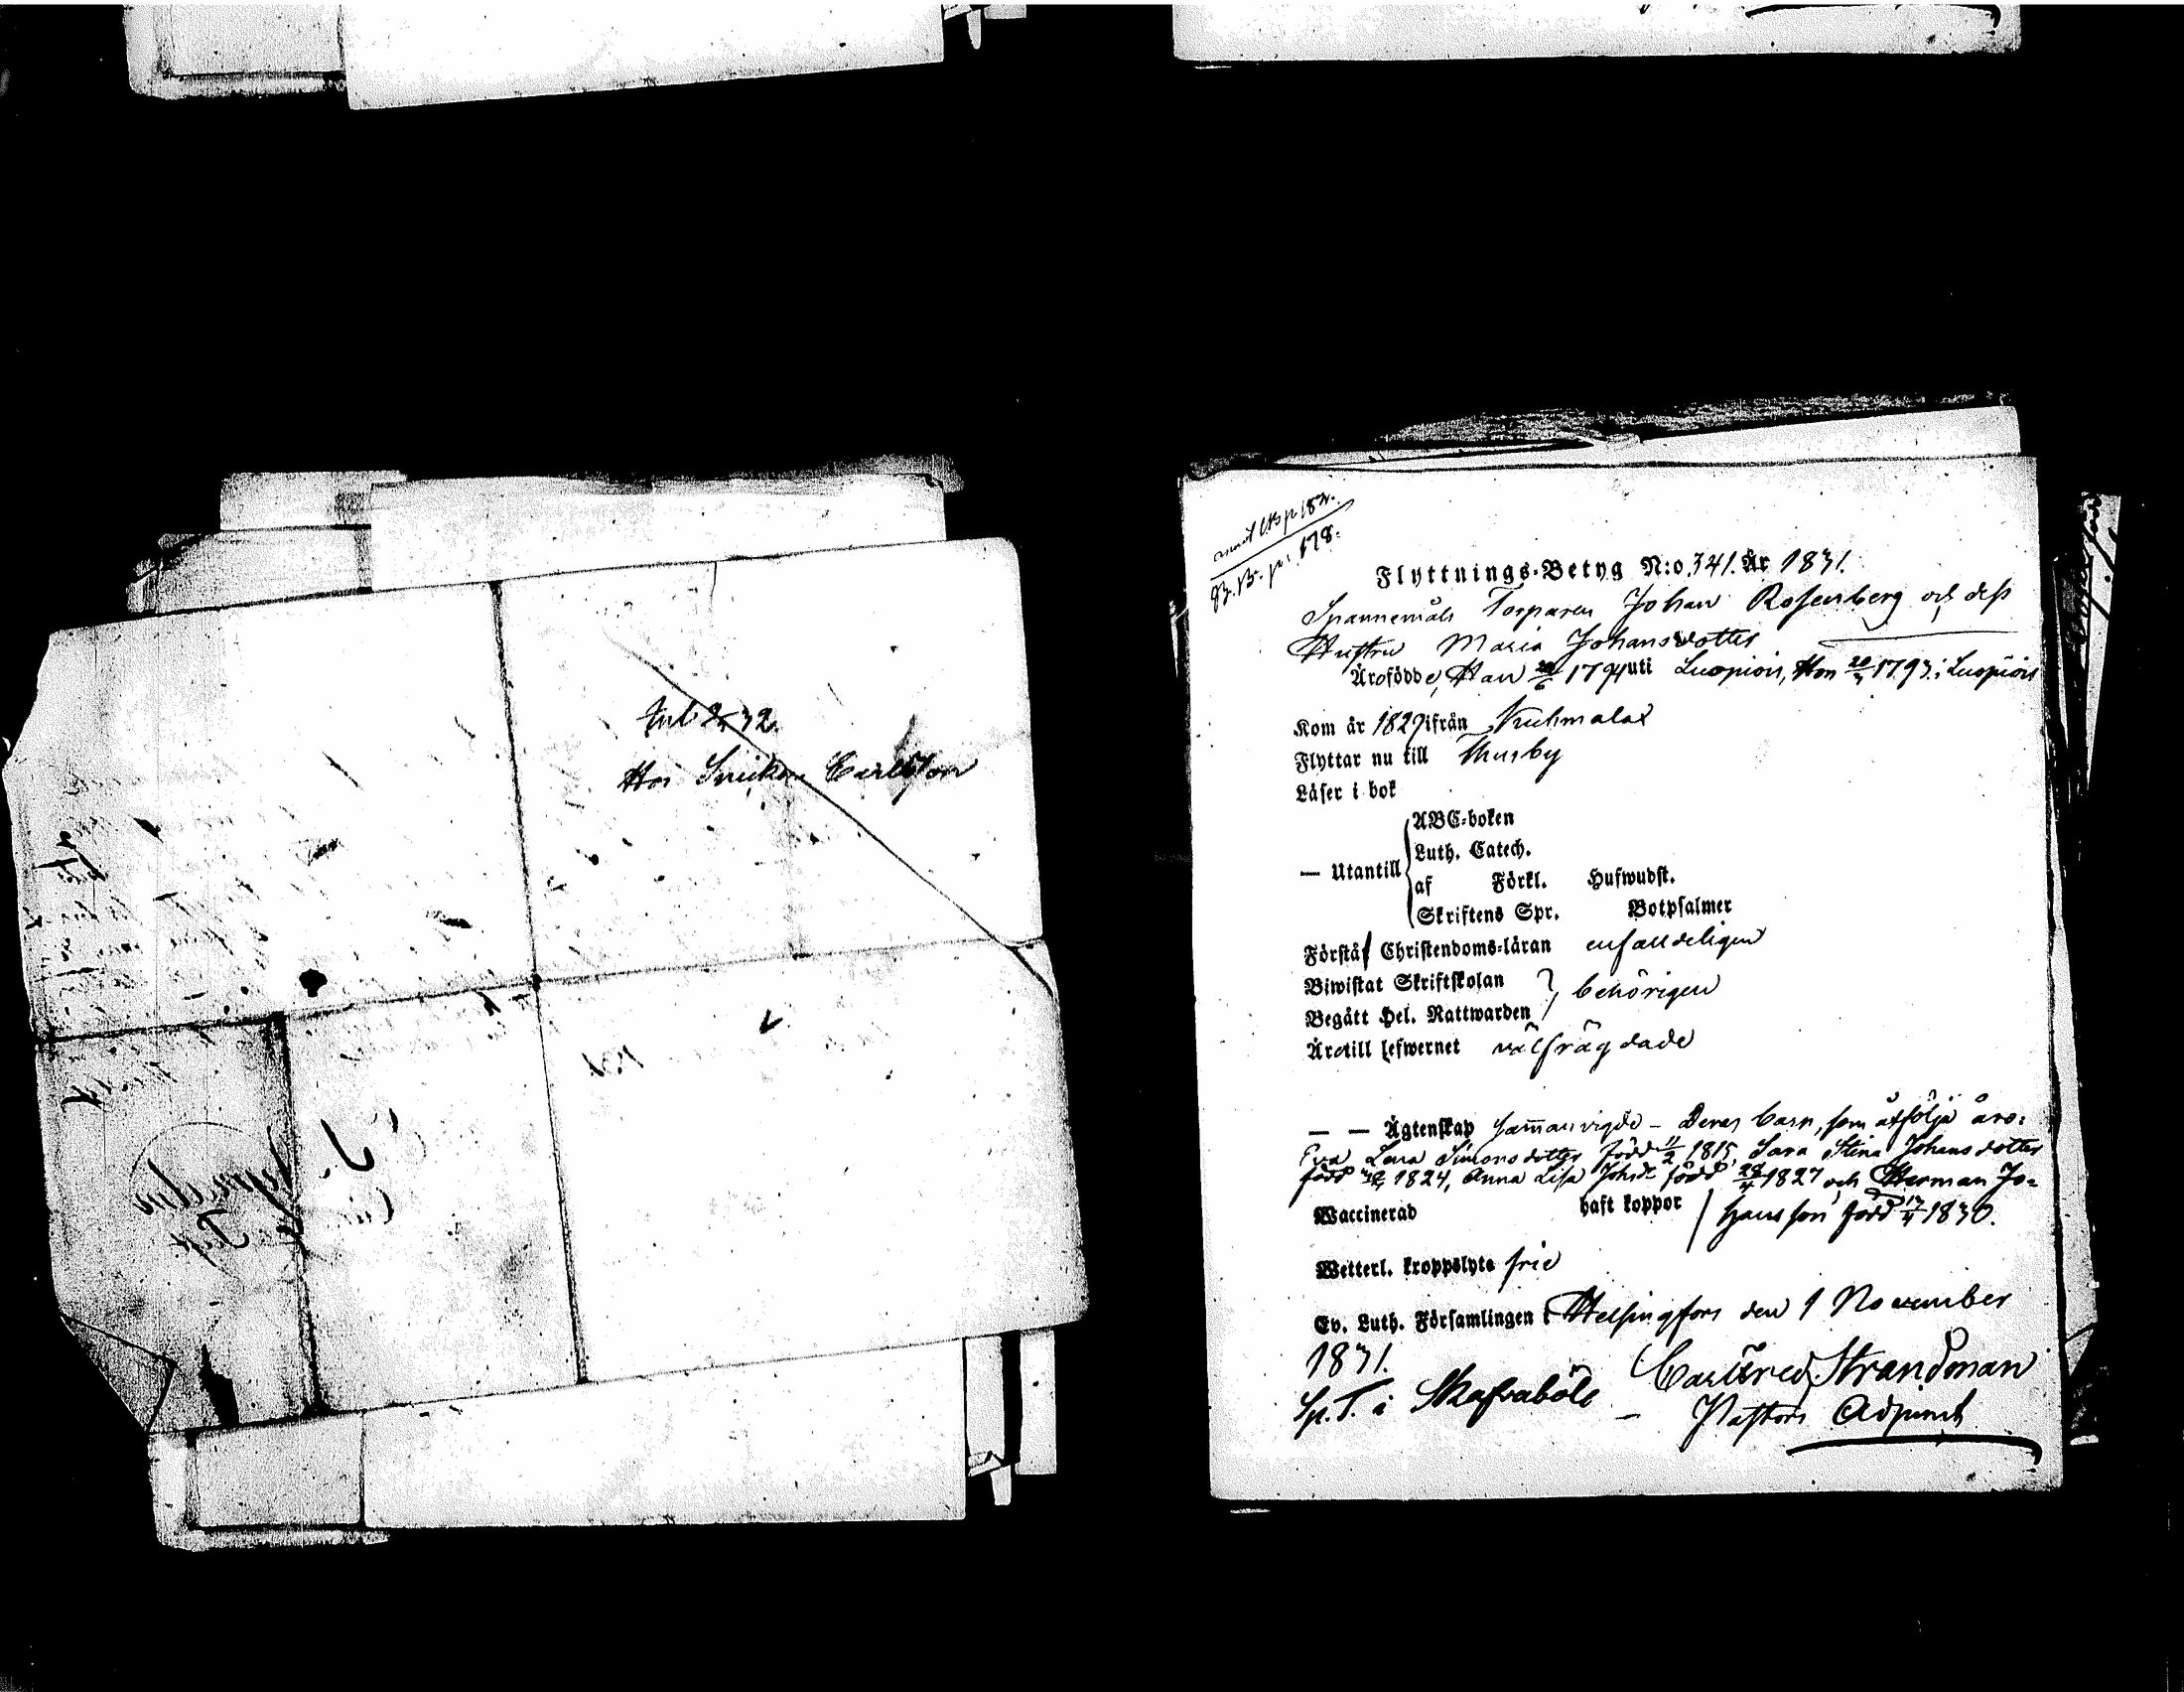 Hos Snickar Carlsson
B. B. p. 178.
Flyttnings-Betyg N:o 341. År 1831.
Spannemåls Torparen Johan Rosenberg och dess
Hustru Maria Johansdotter
Äro födde, Han 1794 uti Luopiois, Hon 1793 i Luopiois
Kom år 1829 ifrån Kuhmalax
Flyttar nu till Thusby
Läser i bok
ABC-boken
Luth. Catech.
— Utantill
af Förkl. Hufwudst.
Skriftens Spr. Botpsalmer
Förstå Christendoms-läran enfalldeligen
Biwistat Skriftskolan
behörigen
Begått Hel. Nattwarden
Äro till lefwernet välfrägdade
— — Ägtenskap sammanvigde – Deras barn, som åtfölja äro:
Eva Lena Simonsdotter född 11/2 1815, Sara Stina Johansdotter
född 1824, Anna Lisa Johsdr född 1827 och Herman Jo=
Waccinerad haft koppor hansson född 1830.
Wetterl. kroppslyte frie
Ev. Luth. Församlingen i Helsingfors den 1 November
1831.
Carl Fred. Strandman
Sp. T. i Skafraböle – Pastors Adjunct